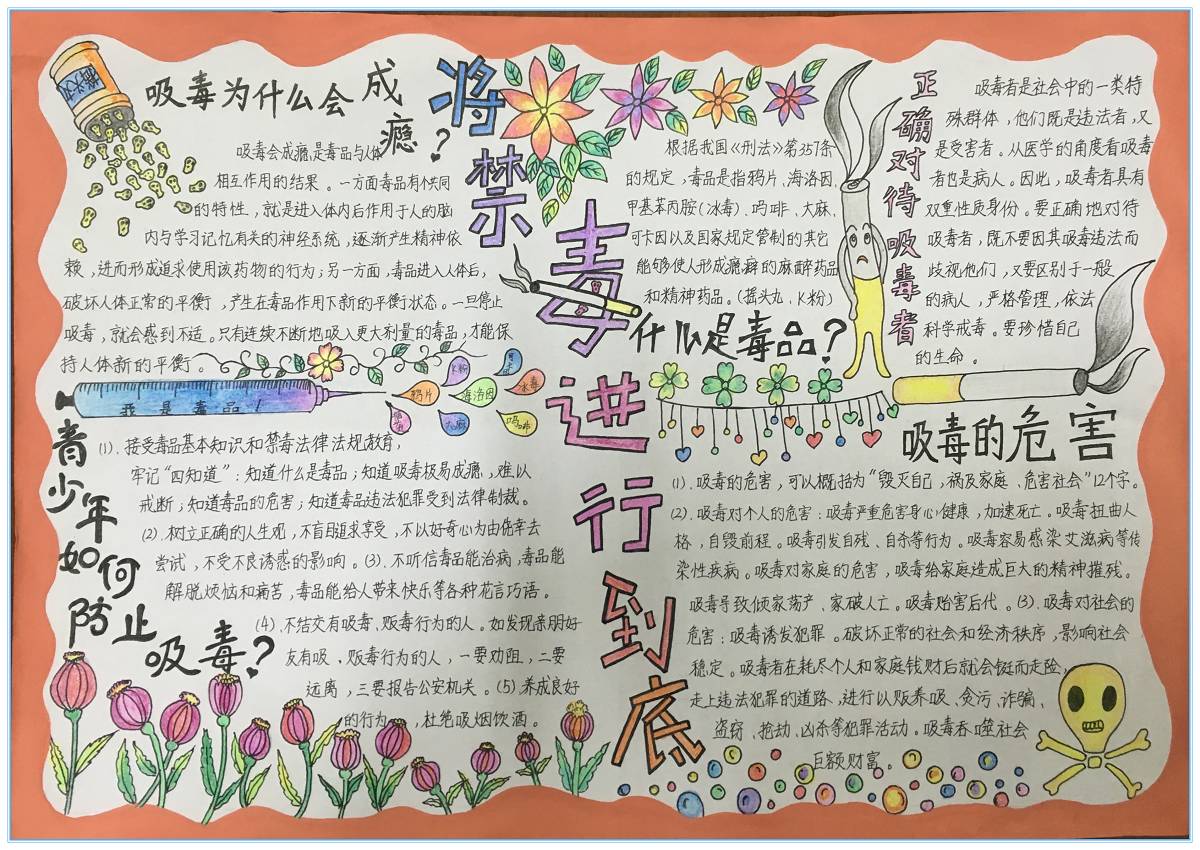 将禁毒进行到底
摇头丸
吸毒为什么会成瘾？
吸毒会成瘾，是毒品与人体
相互作用的结果。一方面毒品有个共同
的特性，就是进入体内后作用于人的脑
内与学习记忆有关的神经系统，逐渐产生精神依
赖，进而形成追求使用该药物的行为；另一方面，毒品进入人体后，
破坏人体正常的平衡，产生在毒品作用下新的平衡状态。一旦停止
吸毒，就会感到不适。只有连续不断地吸入更大剂量的毒品，才能保
持人体新的平衡。
我是毒品！
鸦片
K粉
海洛因
冰毒
大麻
吗啡
什么是毒品？
根据我国《刑法》第357条
的规定，毒品是指鸦片、海洛因、
甲基苯丙胺(冰毒)、吗啡、大麻、
可卡因以及国家规定管制的其它
能够使人形成瘾癖的麻醉药品
和精神药品。(摇头丸、K粉)
正确对待吸毒者
吸毒者是社会中的一类特
殊群体，他们既是违法者，又
是受害者。从医学的角度看吸毒
者也是病人。因此，吸毒者具有
双重性质身份。要正确地对待
吸毒者，既不要因其吸毒违法而
歧视他们，又要区别于一般
的病人，严格管理，依法
科学戒毒。要珍惜自己
的生命。
青少年如何防止吸毒？
(1).接受毒品基本知识和禁毒法律法规教育，
牢记“四知道”：知道什么是毒品；知道吸毒极易成瘾，难以
戒断；知道毒品的危害；知道毒品违法犯罪受到法律制裁。
(2).树立正确的人生观，不盲目追求享受，不以好奇心为由侥幸去
尝试，不受不良诱惑的影响。(3).不听信毒品能治病，毒品能
解脱烦恼和痛苦，毒品能给人带来快乐等各种花言巧语。
(4).不结交有吸毒、贩毒行为的人。如发现亲朋好
友有吸、贩毒行为的人，一要劝阻，二要
远离，三要报告公安机关。(5)养成良好
的行为，杜绝吸烟饮酒。
吸毒的危害
(1).吸毒的危害，可以概括为“毁灭自己，祸及家庭、危害社会”12个字。
(2).吸毒对个人的危害：吸毒严重危害身心健康，加速死亡。吸毒扭曲人
格，自毁前程。吸毒引发自残、自杀等行为。吸毒容易感染艾滋病等传
染性疾病。吸毒对家庭的危害，吸毒给家庭造成巨大的精神摧残。
吸毒导致倾家荡产、家破人亡。吸毒贻害后代。(3).吸毒对社会的
危害：吸毒诱发犯罪。破坏正常的社会和经济秩序，影响社会
稳定。吸毒者在耗尽个人和家庭钱财后就会铤而走险，
走上违法犯罪的道路，进行以贩养吸、贪污、诈骗、
盗窃、抢劫、凶杀等犯罪活动。吸毒吞噬社会
巨额财富。